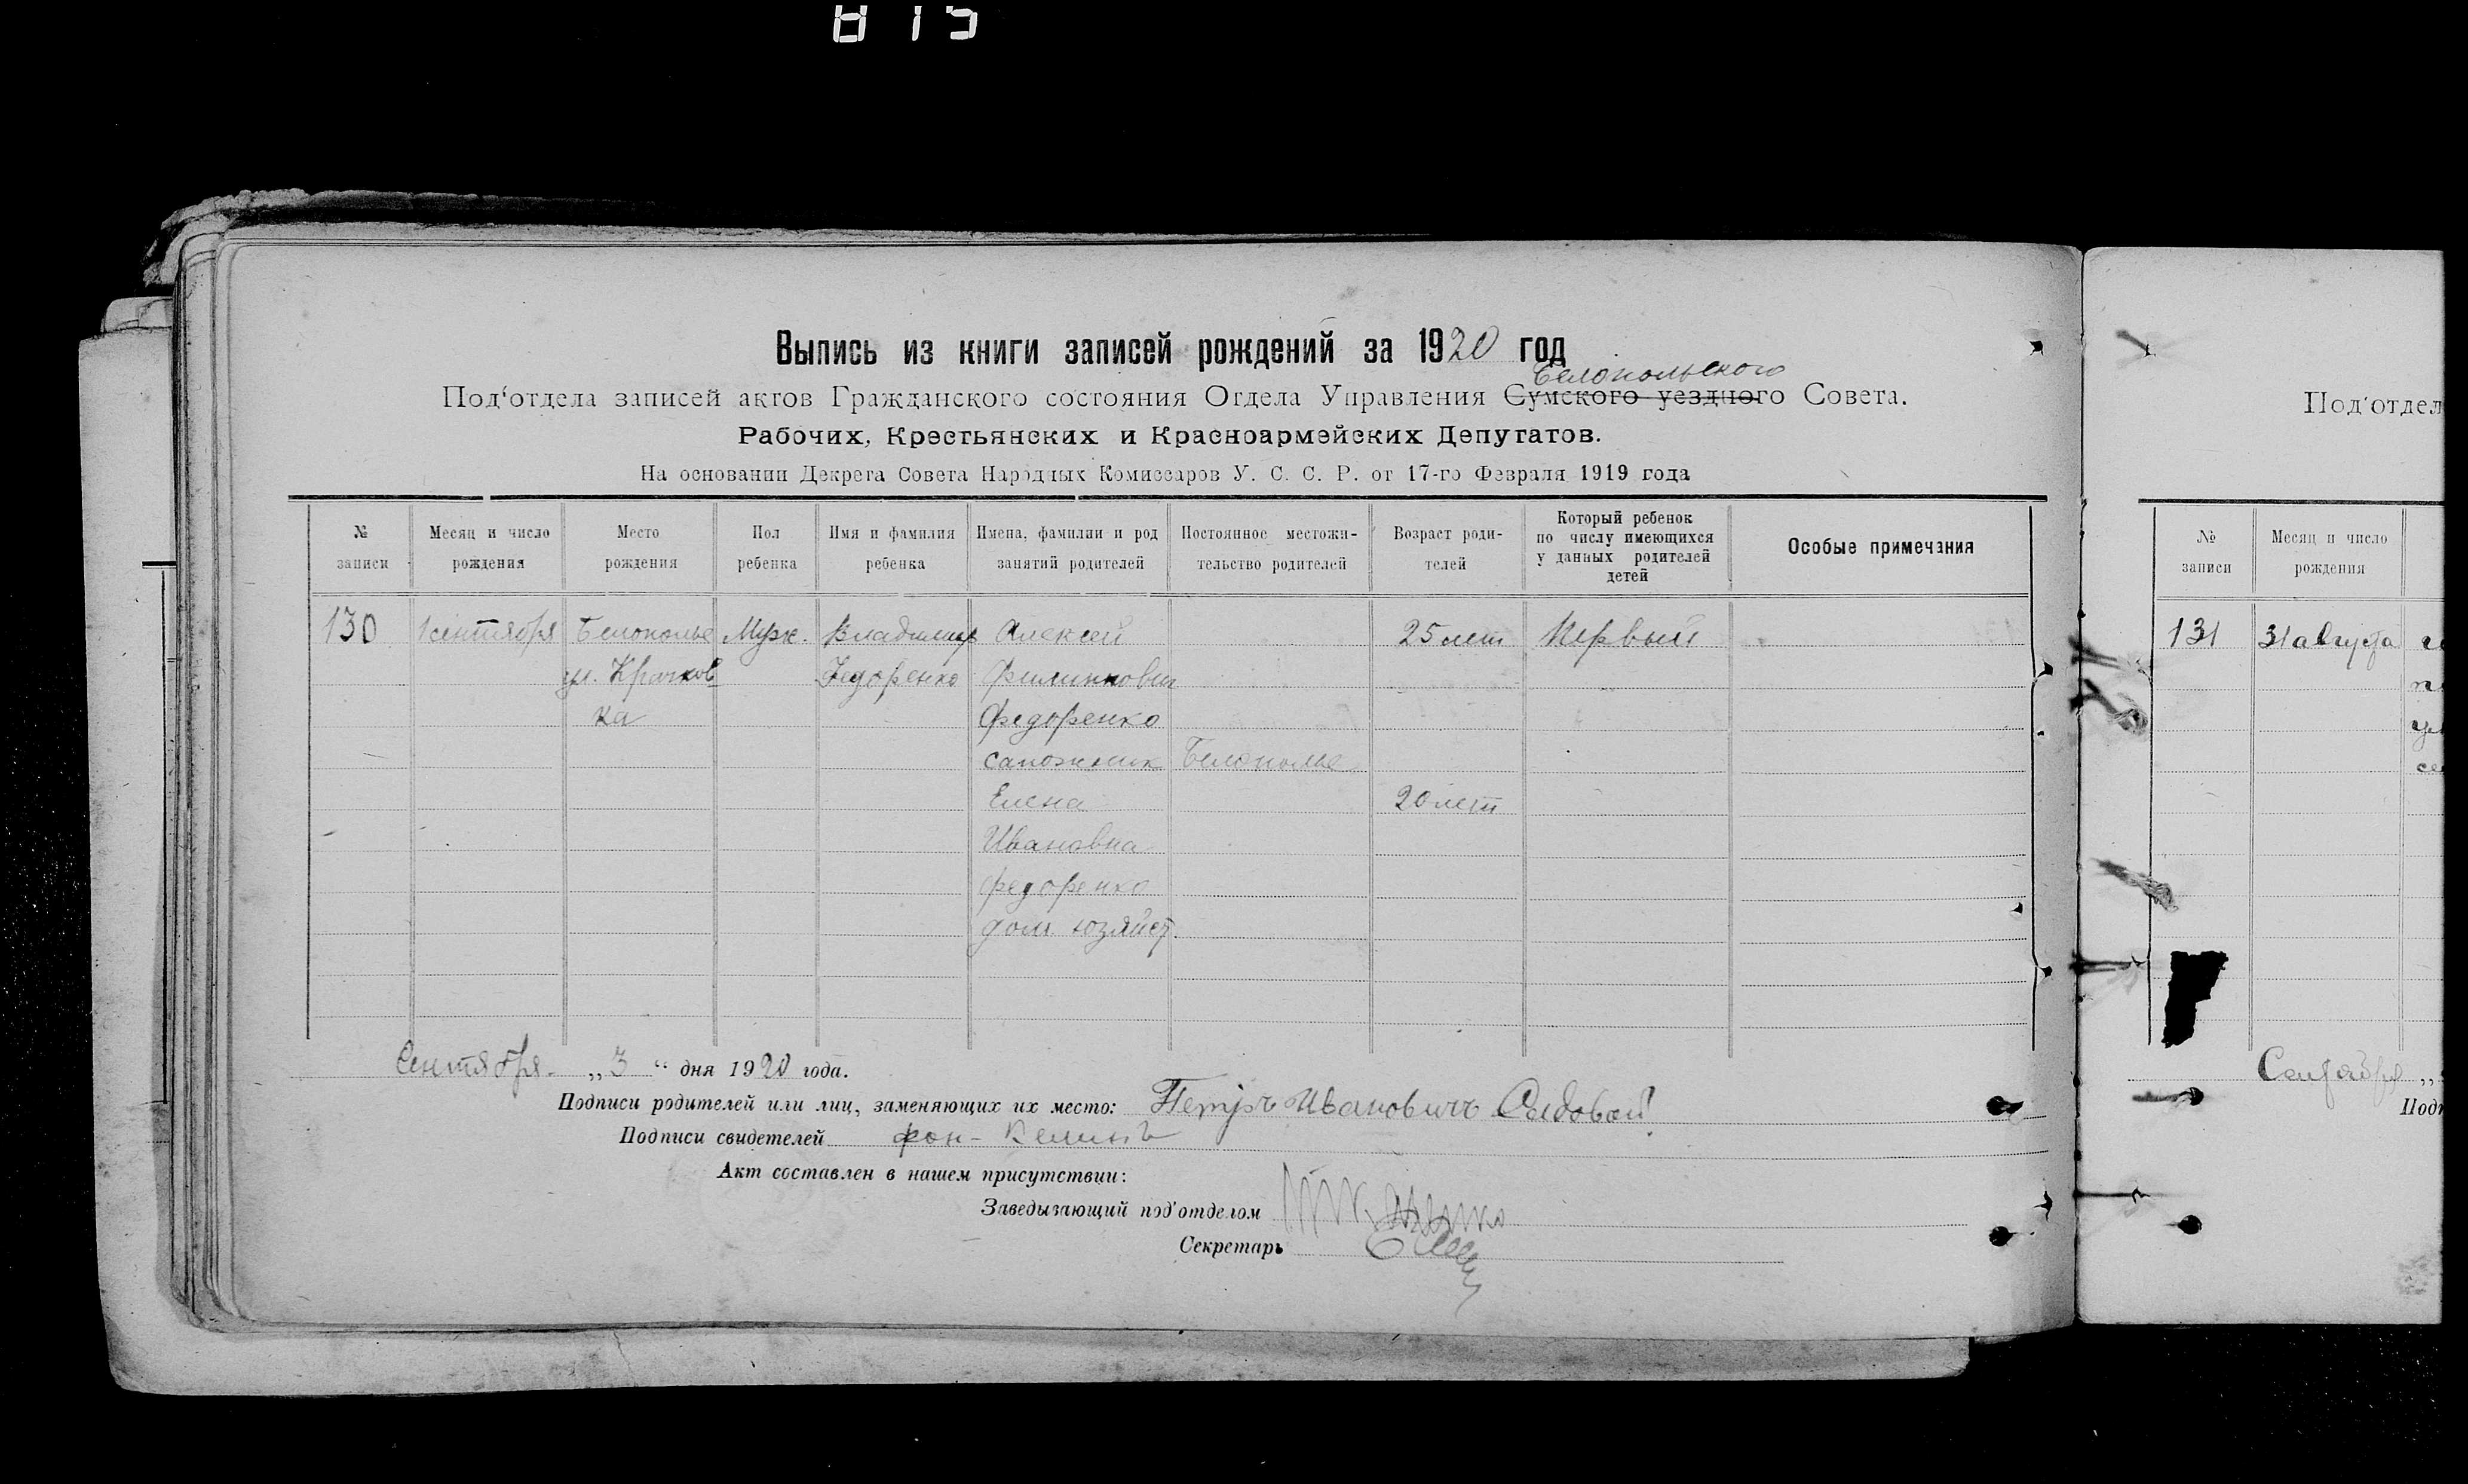 815
Выпись из книги записей рождений за 1920 год
Белопольского
Под'отдела записей актов Гражданского состояния Отдела Управления Сумского уездного Совета.
Рабочих, Крестьянских и Красноармейских Депутатов.
На основании Декрета Совета Народных Комиссаров У. С. С. Р. от 17-го Февраля 1919 года
№ записи
Месяц и число рождения
Место рождения
Пол ребенка
Имя и фамилия ребенка
Имена, фамилии и род занятий родителей
Постоянное местожительство родителей
Возраст родителей
Который ребенок по числу имеющихся у данных родителей детей
Особые примечания
130 1 сентября Белополье Муж. Владимир Алексей 25 лет Первый
ул. Крачков- Федоренко Филиппович
ка Федоренко
сапожник Белополье
Елена 20 лет
Ивановна
Федоренко
дом. хозяйст.
Сентября „3“ дня 1920 года.
Подписи родителей или лиц, заменяющих их место: Петръ Ивановичъ Садовой
Подписи свидетелей фон-
Акт составлен в нашем присутствии:
Заведывающий под'отделом
Секретарь
Под'отдел
№ записи
Месяц и число рождения
131 31 августа
Сентября „
Под